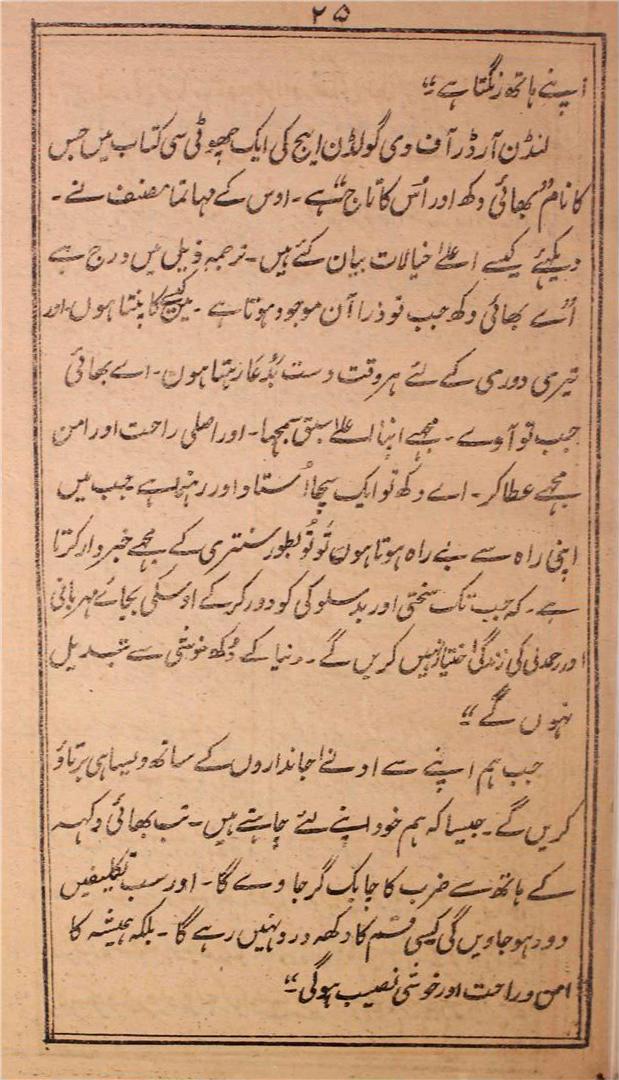 ۲۵
اپنے ہاتھ رنگتا ہے“
لنڈن آرڈر آف دی گولڈن ایج کی ایک چھوٹی سی کتاب میں جس
کا نام ”بھائی دکھ اور اُس کا تاج“ ہے۔ اوس کے مہاتما مصنف نے۔
دیکھئے کیسے اعلےٰ خیالات بیان کئے ہیں۔ ترجمہ ذیل میں درج ہے
”اے بھائی دکھ جب تو ذرا آن موجود ہوتا ہے۔ میں کیسے کانپتا ہوں۔ اور
تیری دوری کے لئے ہر وقت دست بدُعا رہتا ہون۔ اے بھائی
جب تو آوے۔ مجہے اپنا اعلےٰ سبق سمجہا۔ اور اصلی راحت اور امن
مجہے عطا کر۔ اے دکھ تو ایک سچا اُستاد اور رہنما ہے جب میں
اپنی راہ سے بے راہ ہوتا ہون تُو تُو بطور سنتری کے مجہے خبردار کرتا
ہے۔ کہ جب تک سختی اور بدسلوکی کو دور کر کے اوسکی بجائے مہربانی
اور رحمدلی کی زندگی اختیار نہیں کریں گے۔ دنیا کے دُکھ خوشی سے تبدیل
نہوں گے“
جب ہم اپنے سے ادنےٰ جانداروں کے ساتھ ویسا ہی برتاؤ
کریں گے۔ جیسا کہ ہم خود اپنے لئے چاہتے ہیں۔ تب بھائی دکہہ
کے ہاتھ سے ضرب کا چابک گر جاوے گا۔ اور سب تکلیفیں
دور ہو جاویں گی کیسی قسم کا دکھہ درد نہیں رہے گا۔ بلکہ ہمیشہ کا
امن و راحت اور خوشی نصیب ہوگی“